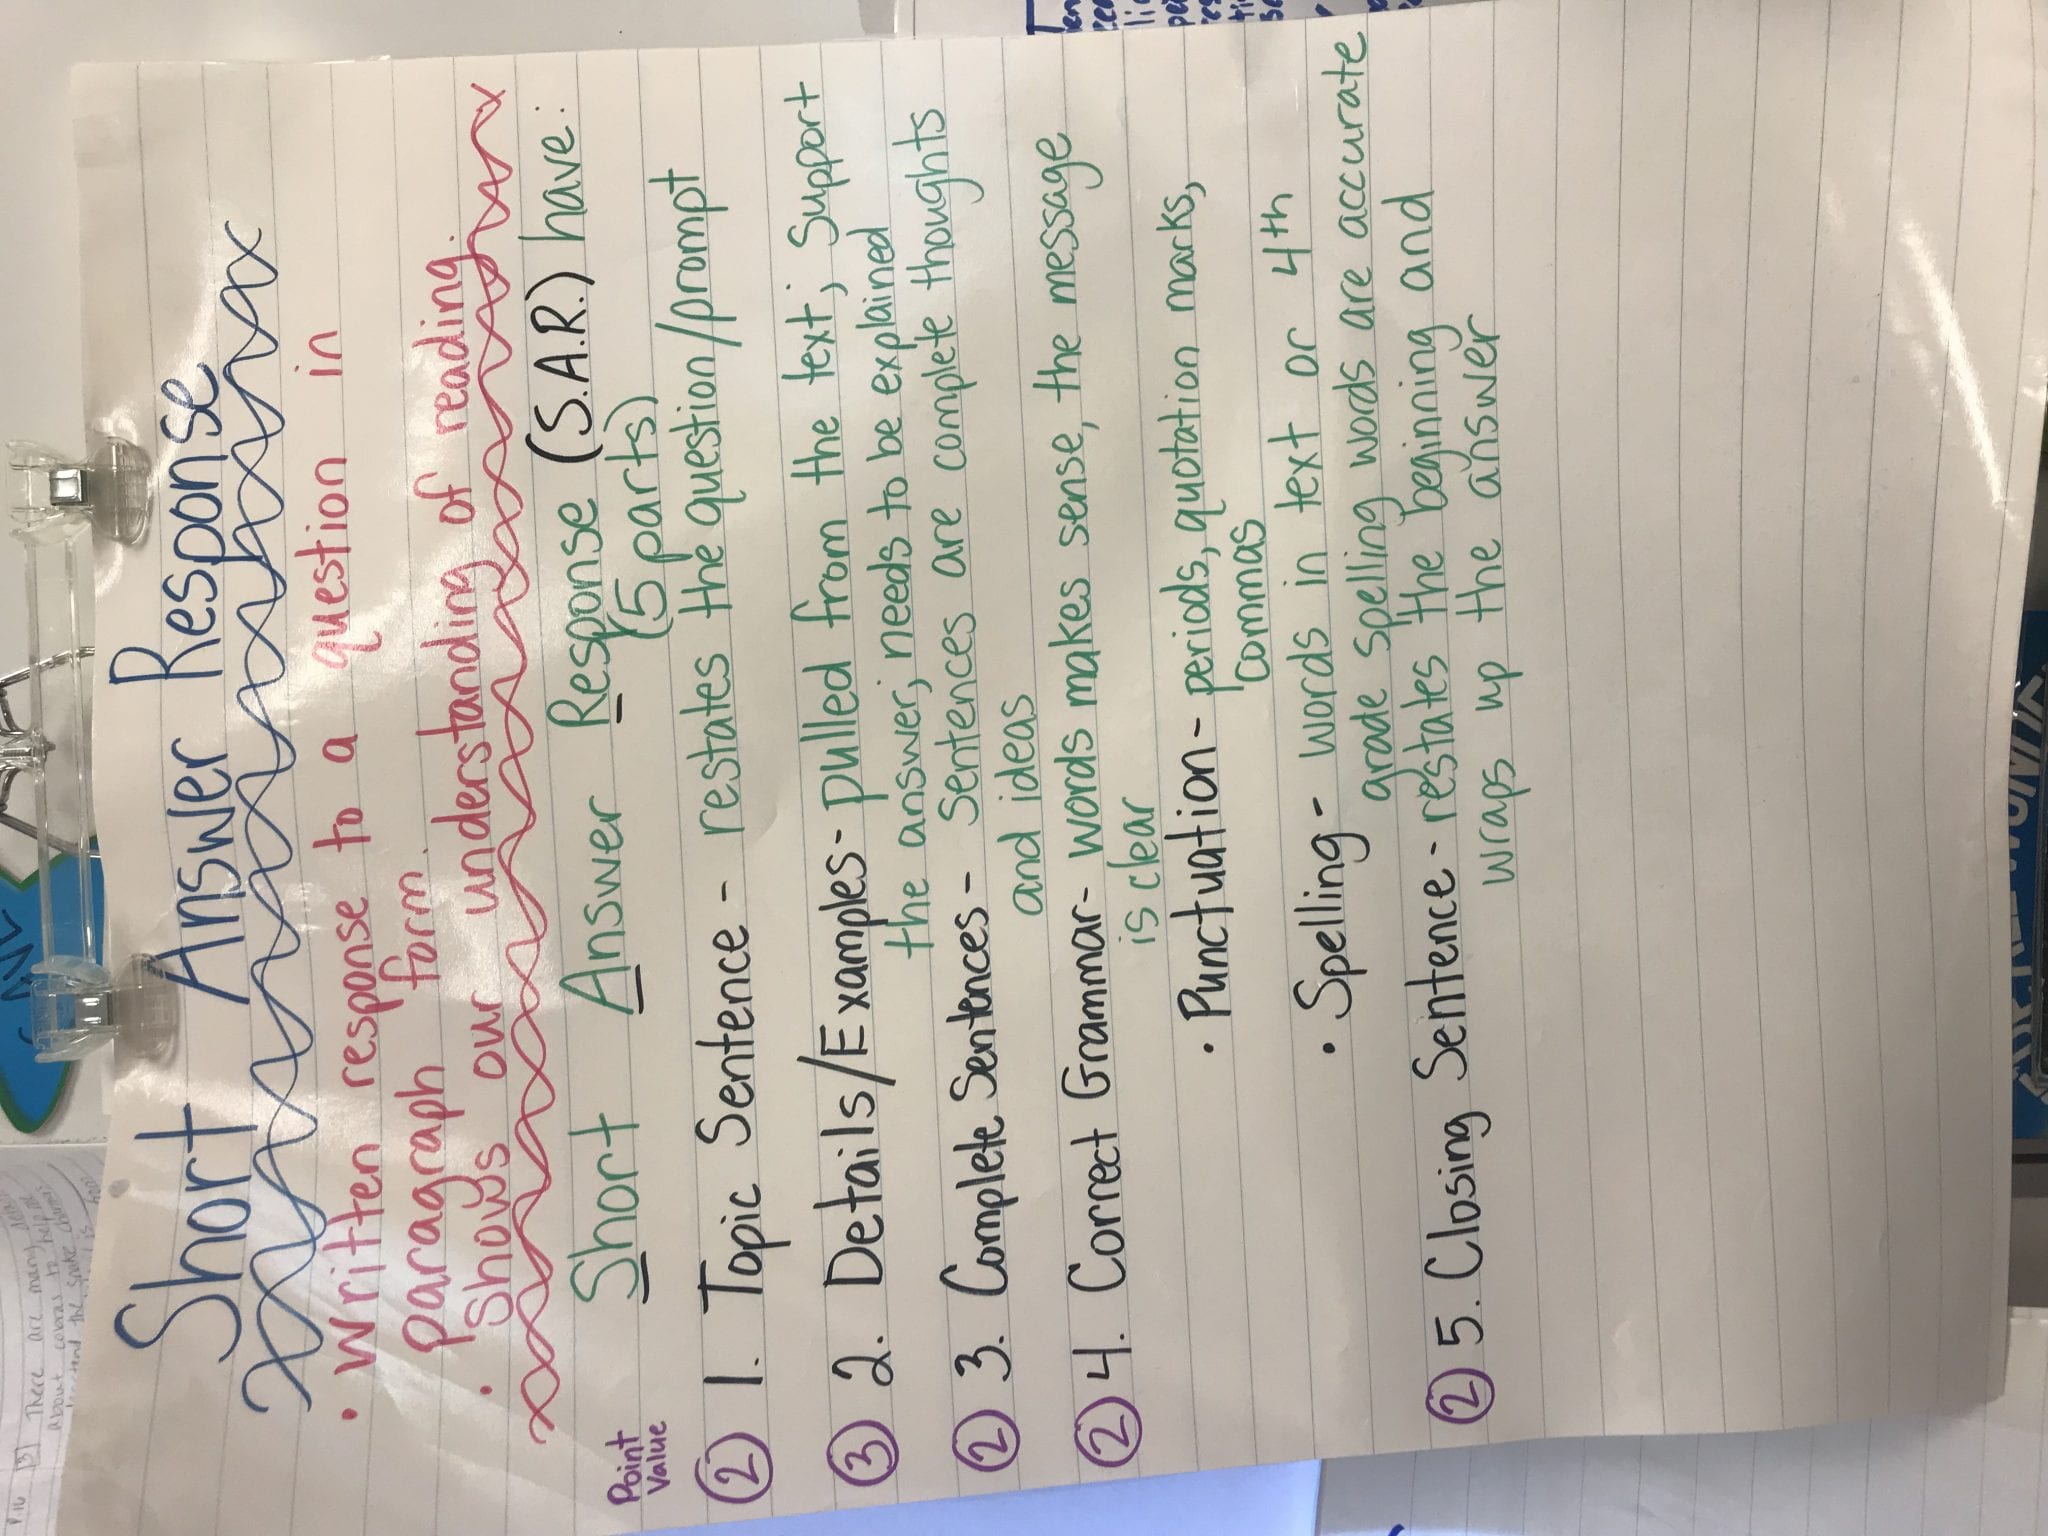 Short Answer Response
• Written response to a question in
paragraph form.
• Shows our understanding of reading.
Short Answer Response (S.A.R.) have:
(5 parts)
Point
Value
② 1. Topic Sentence - restates the question/prompt
③ 2. Details/Examples- pulled from the text; Support
the answer; needs to be explained
② 3. Complete Sentences - sentences are complete thoughts
and ideas
② 4. Correct Grammar- words makes sense, the message
is clear
• Punctuation - periods, quotation marks,
commas
• Spelling - words in text or 4th
grade spelling words are accurate
② 5. Closing Sentence - restates the beginning and
wraps up the answer
P.16 B There are many
about cobras to help